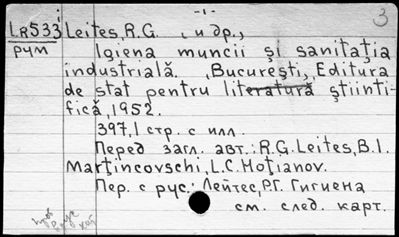 -1-
3
LR533 Leites, R.G. , и др.,
рум
Igiena muncii şi sanitaţia
industrială. , Bucureşti, Editura
de stat pentru literatură ştiinti-
fică, 1952.
397,1 стр. с илл.
Перед загл. авт.: R.G. Leites, B.I.
Marţincovschi, L.C. Hoţianov.
Пер. с рус.: Лейтес, Р.Г. Гигиена
см. след. карт.